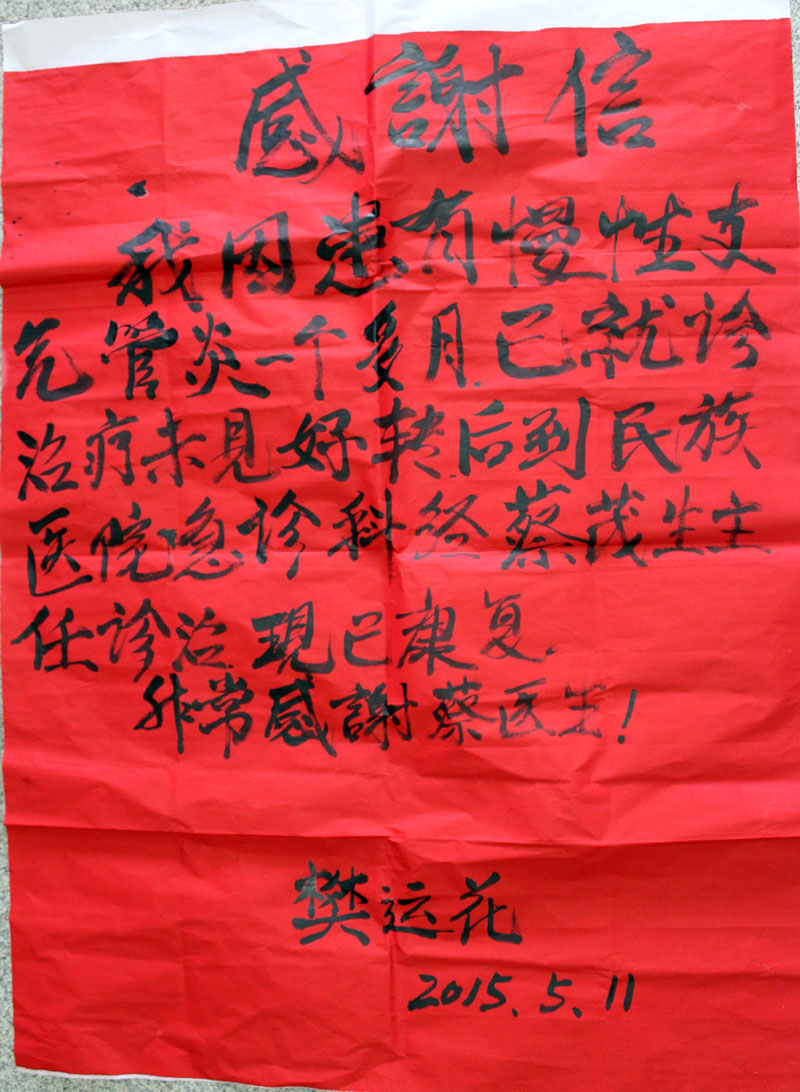 感謝信
我因患有慢性支
气管炎一个多月.已就诊
治疗未见好转.后到民族
医院急诊科经蔡茂生主
任诊治.現已康复.
非常感謝蔡医生!
樊运花
2015.5.11